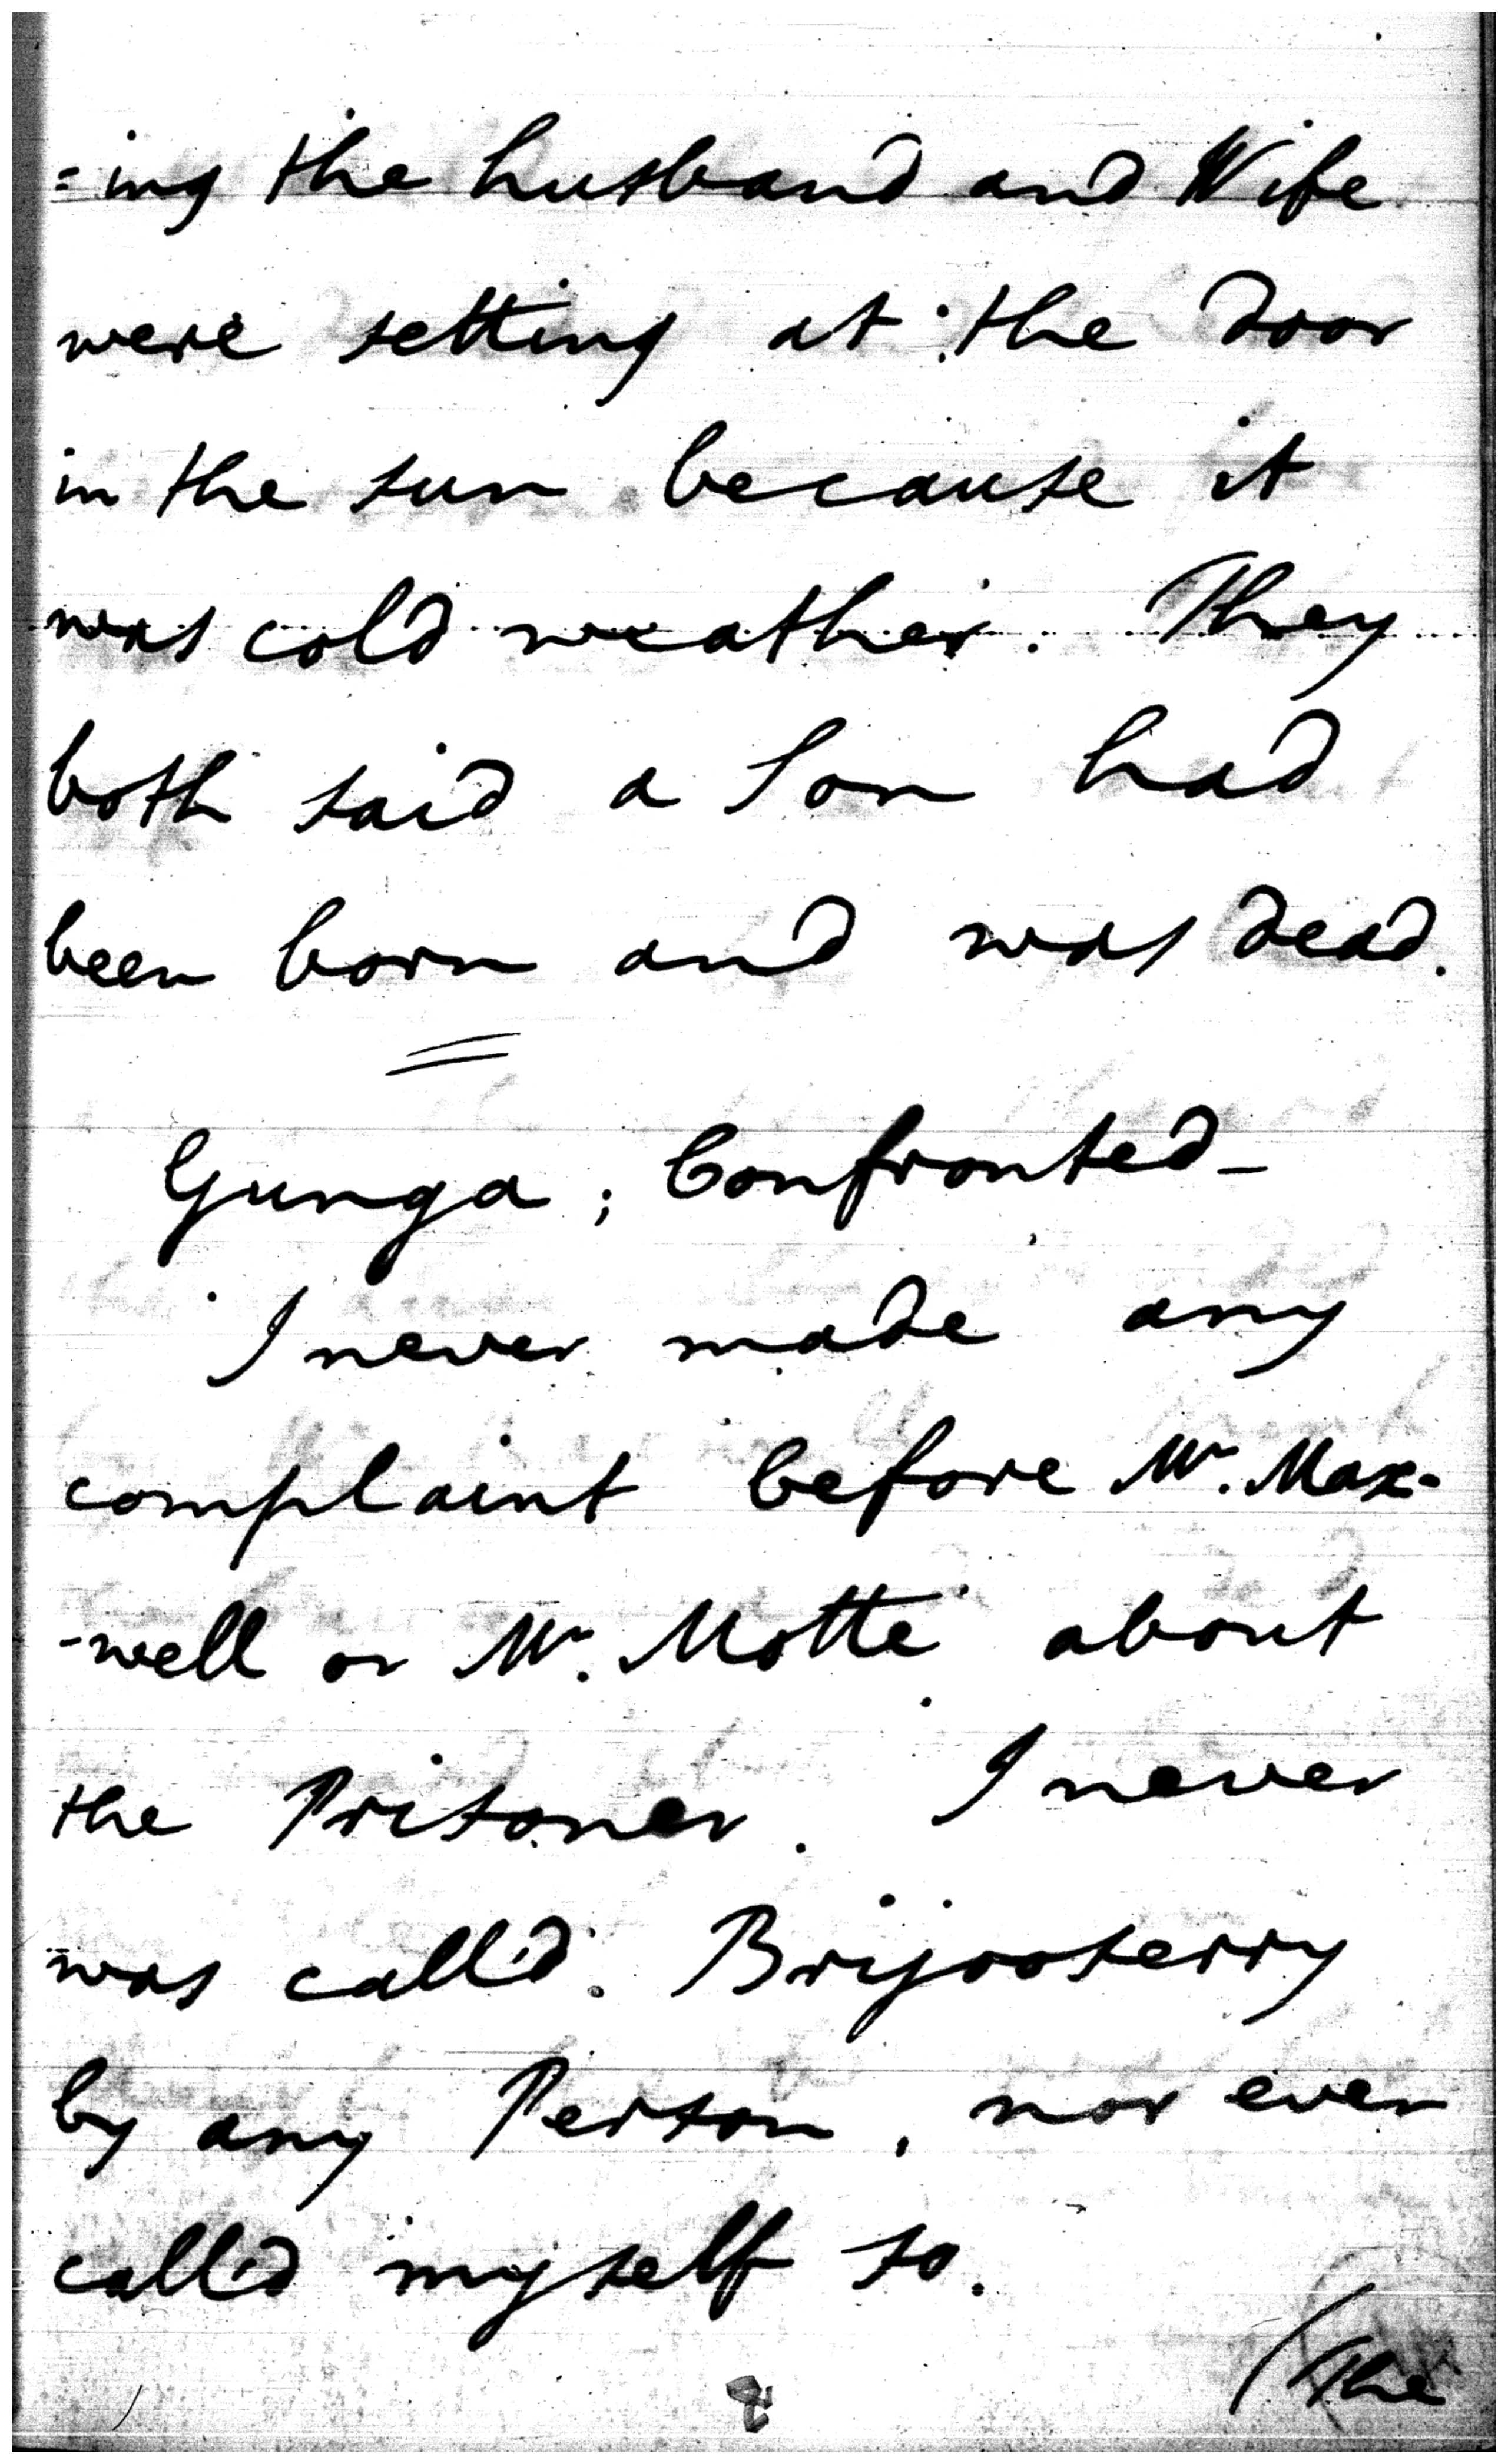 =ing the husband and Wife
were setting at the door
in the sun because it
was cold weather. They
both said a Son had
been born and was dead.
Gunga; Confronted-
I never made any
complaint before Mr. Max-
-well or Mr. Motte about
the Prisoner. I never
was call'd Brijooserry
by any Person, nor ever
call'd myself so.
(The